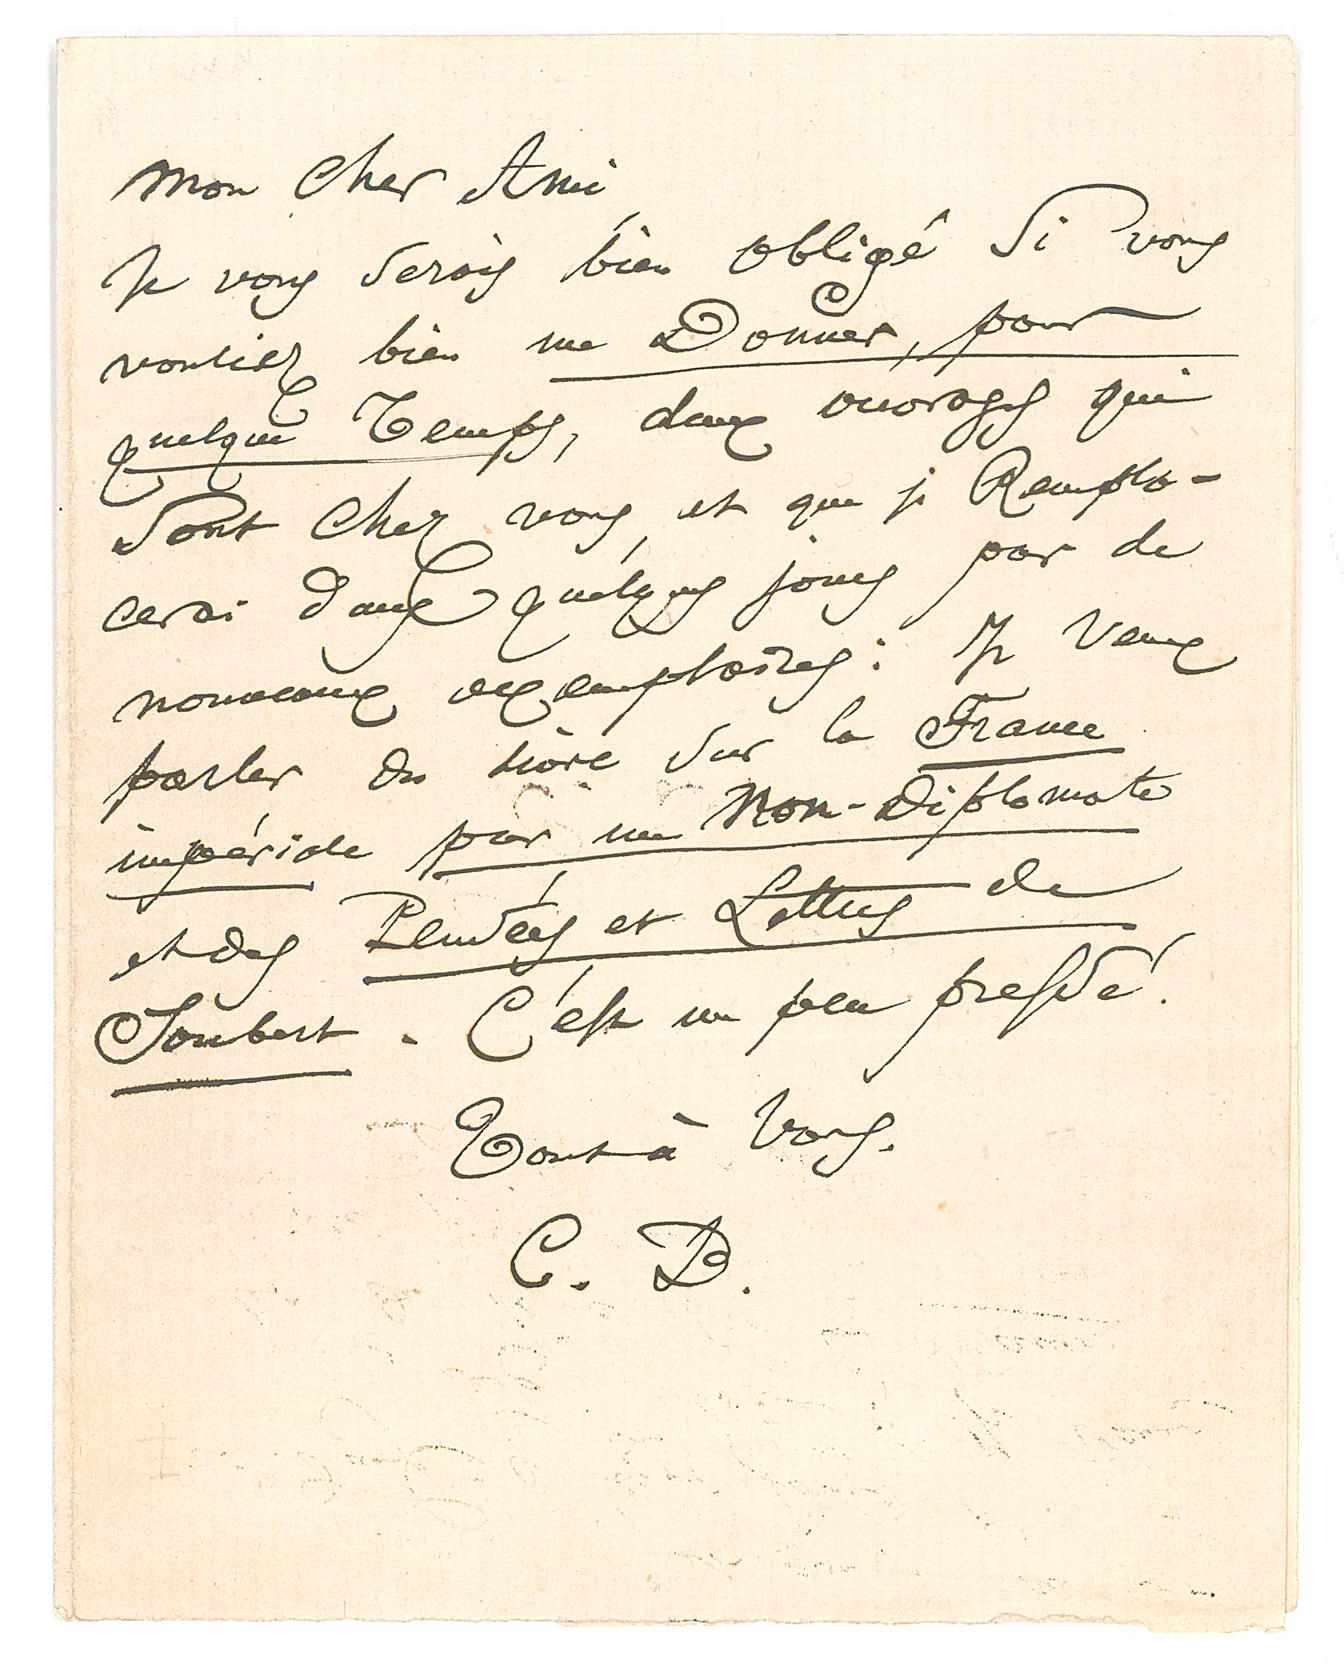 Mon Cher Ami
Je vous serais bien obligé si vous
vouliez bien me Donner, pour
quelque Temps, deux ouvrages qui
sont Chez vous, et que je Rempla-
cerai dans quelques jours par de
nouveaux exemplaires : Je veux
parler du livre sur la France
impériale par un Non-Diplomate
et des Pensées et Lettres de
Joubert. C'est un peu pressé !
Tout à Vous.
C. D.